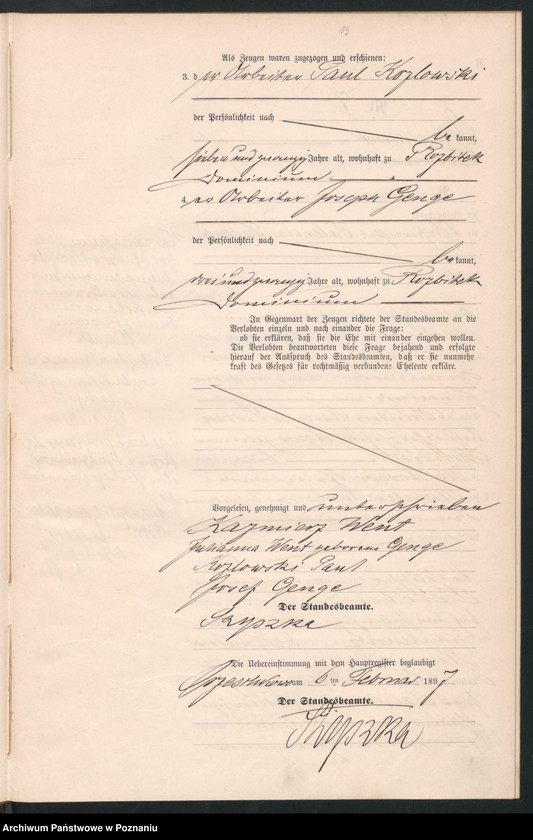 13
Als Zeugen waren zugezogen und erschienen:
3. der Arbeiter Paul Kozlowski
der Persönlichkeit nach
bekannt,
siebenundzwanzig Jahre alt, wohnhaft zu Rozbitek
Dominium
4. der Arbeiter Joseph Genge
der Persönlichkeit nach
bekannt,
dreiundzwanzig Jahre alt, wohnhaft zu Rozbitek
Dominium
In Gegenwart der Zeugen richtete der Standesbeamte an die
Verlobten einzeln und nach einander die Frage:
ob sie erklären, daß sie die Ehe mit einander eingehen wollen.
Die Verlobten beantworteten diese Frage bejahend und erfolgte
hierauf der Ausspruch des Standesbeamten, daß er sie nunmehr
kraft des Gesetzes für rechtmäßig verbundene Eheleute erkläre.
Vorgelesen, genehmigt und unterschrieben
Kazmierz Went
Julianna Went geborene Genge
Kozlowski Paul
Josef Genge
Der Standesbeamte.
Szyszka
Die Uebereinstimmung mit dem Hauptregister beglaubigt
am 6ten Februar 1897
Der Standesbeamte.
Szyszka
Archiwum Państwowe w Poznaniu